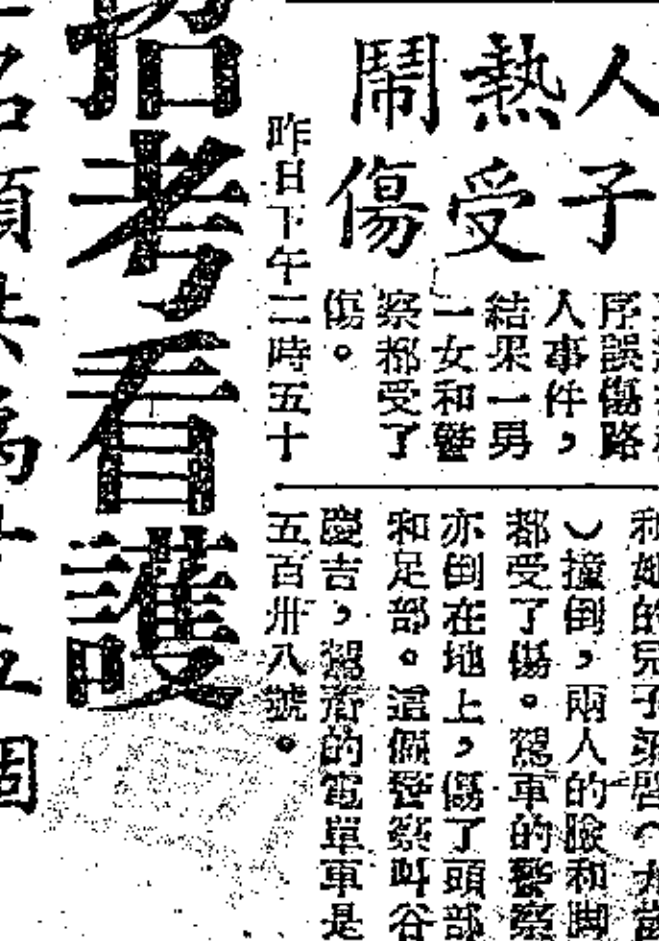 人子
熱受
鬧傷
序誤傷路
人事件，
結果一男
一女和警
察都受了
傷。
昨日下午二時五十
的兒子
）撞倒，兩人的臉和脚
都受了傷。駕車的警察
亦倒在地上，傷了頭部
和足部。這個警察叫谷
慶吉，駕着的電單車是
五百卅八號。
招考看護
五個